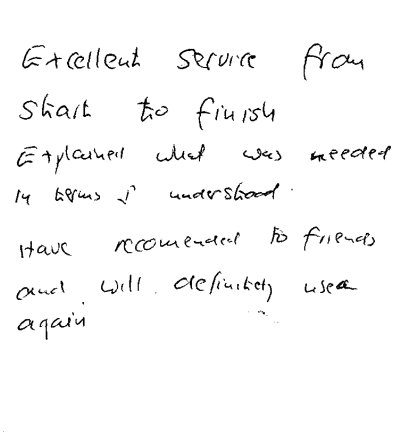 Excellent service from
start to finish
Explained what was needed
in terms I understood.
Have recomended to friends
and will definitely use
again